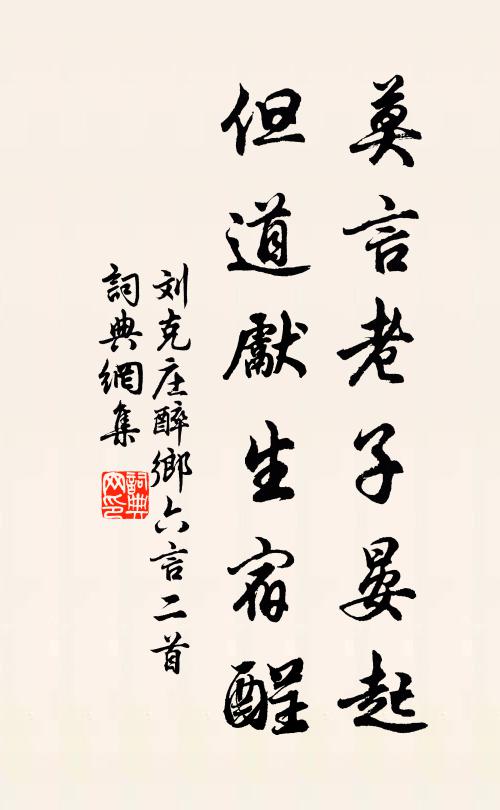 莫言老子晏起
但道獻生宿酲
刘克庄醉鄉六言二首
詞典網集
詞典
网印